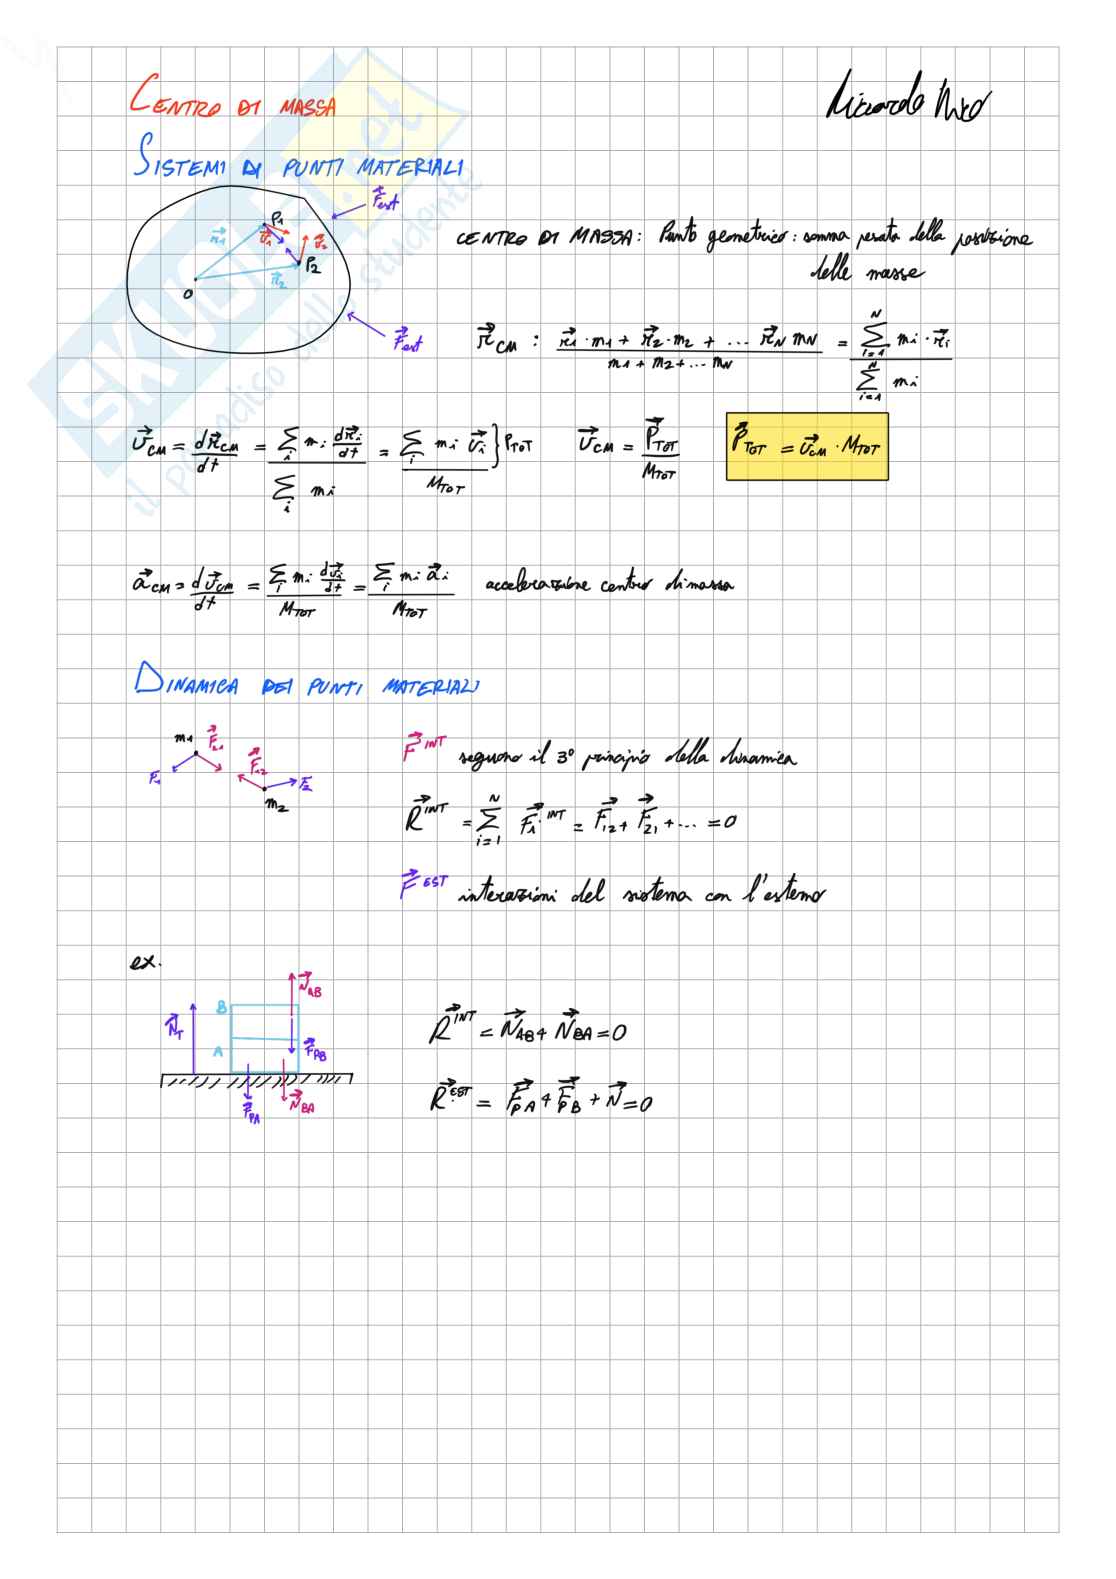 CENTRO DI MASSA
Riccardo
SISTEMI DI PUNTI MATERIALI
F⃗est
P1
r⃗1
v⃗1
v⃗2
P2
r⃗2
O
F⃗est
CENTRO DI MASSA: Punto geometrico: somma pesata della posizione
delle masse
r⃗CM : (r⃗1·m1 + r⃗2·m2 + ... r⃗N mN) / (m1 + m2 + ... mN) = (∑ i=1 N mi·r⃗i) / (∑ i=1 N mi)
v⃗CM = dr⃗CM/dt = (∑i mi dr⃗i/dt) / (∑i mi) = (∑i mi v⃗i) } PTOT / MTOT v⃗CM = P⃗TOT / MTOT P⃗TOT = v⃗CM · MTOT
a⃗CM = dv⃗CM/dt = (∑i mi dv⃗i/dt) / MTOT = (∑i mi a⃗i) / MTOT accelerazione centro di massa
DINAMICA DEI PUNTI MATERIALI
m1 F⃗21
F1 F⃗12 F2
m2
F⃗ INT seguono il 3° principio della dinamica
R⃗ INT = ∑ i=1 N F⃗i INT = F⃗12 + F⃗21 + ... = 0
F⃗ EST interazioni del sistema con l'esterno
ex.
N⃗AB
B
N⃗T
A
F⃗PB
F⃗PA
N⃗BA
R⃗ INT = N⃗AB + N⃗BA = 0
R⃗ EST = F⃗PA + F⃗PB + N⃗ = 0
SKUOLA.net
il paradiso dello studente